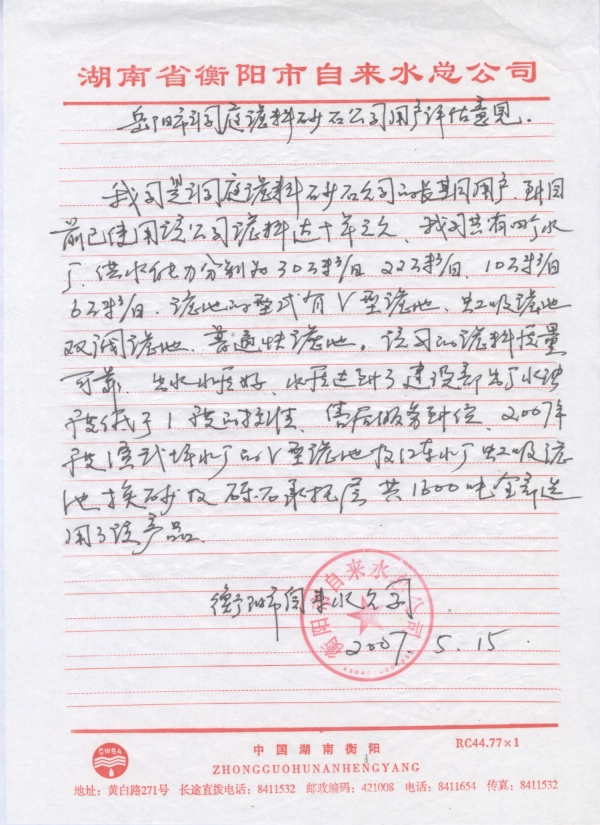 湖南省衡阳市自来水总公司
岳阳市洞庭滤料砂石公司用户评估意见.
我司是洞庭滤料砂石公司的长期用户、到目
前已使用该公司滤料达十年之久、我司共有四个水
厂.供水能力分别为30万米³/日 22万米³/日、10万米³/日
6万米³/日.滤池的型式有V型滤池、虹吸滤池
双阀滤池、普通快滤池。该司的滤料质量
可靠、出水水质好、水质达到了建设部出厂水浊
度低于1度的标准、售后服务到位、2007年
池换砂及砾石承托层共1600吨全部选
用了该产品.
衡阳市自来水公司
2007.5.15
衡阳市自来水总公司
CWSA
中国湖南衡阳
RC44.77×1
ZHONGGUOHUNANHENGYANG
地址:黄白路271号 长途直拨电话:8411532 邮政编码:421008 电话:8411654 传真:8411532